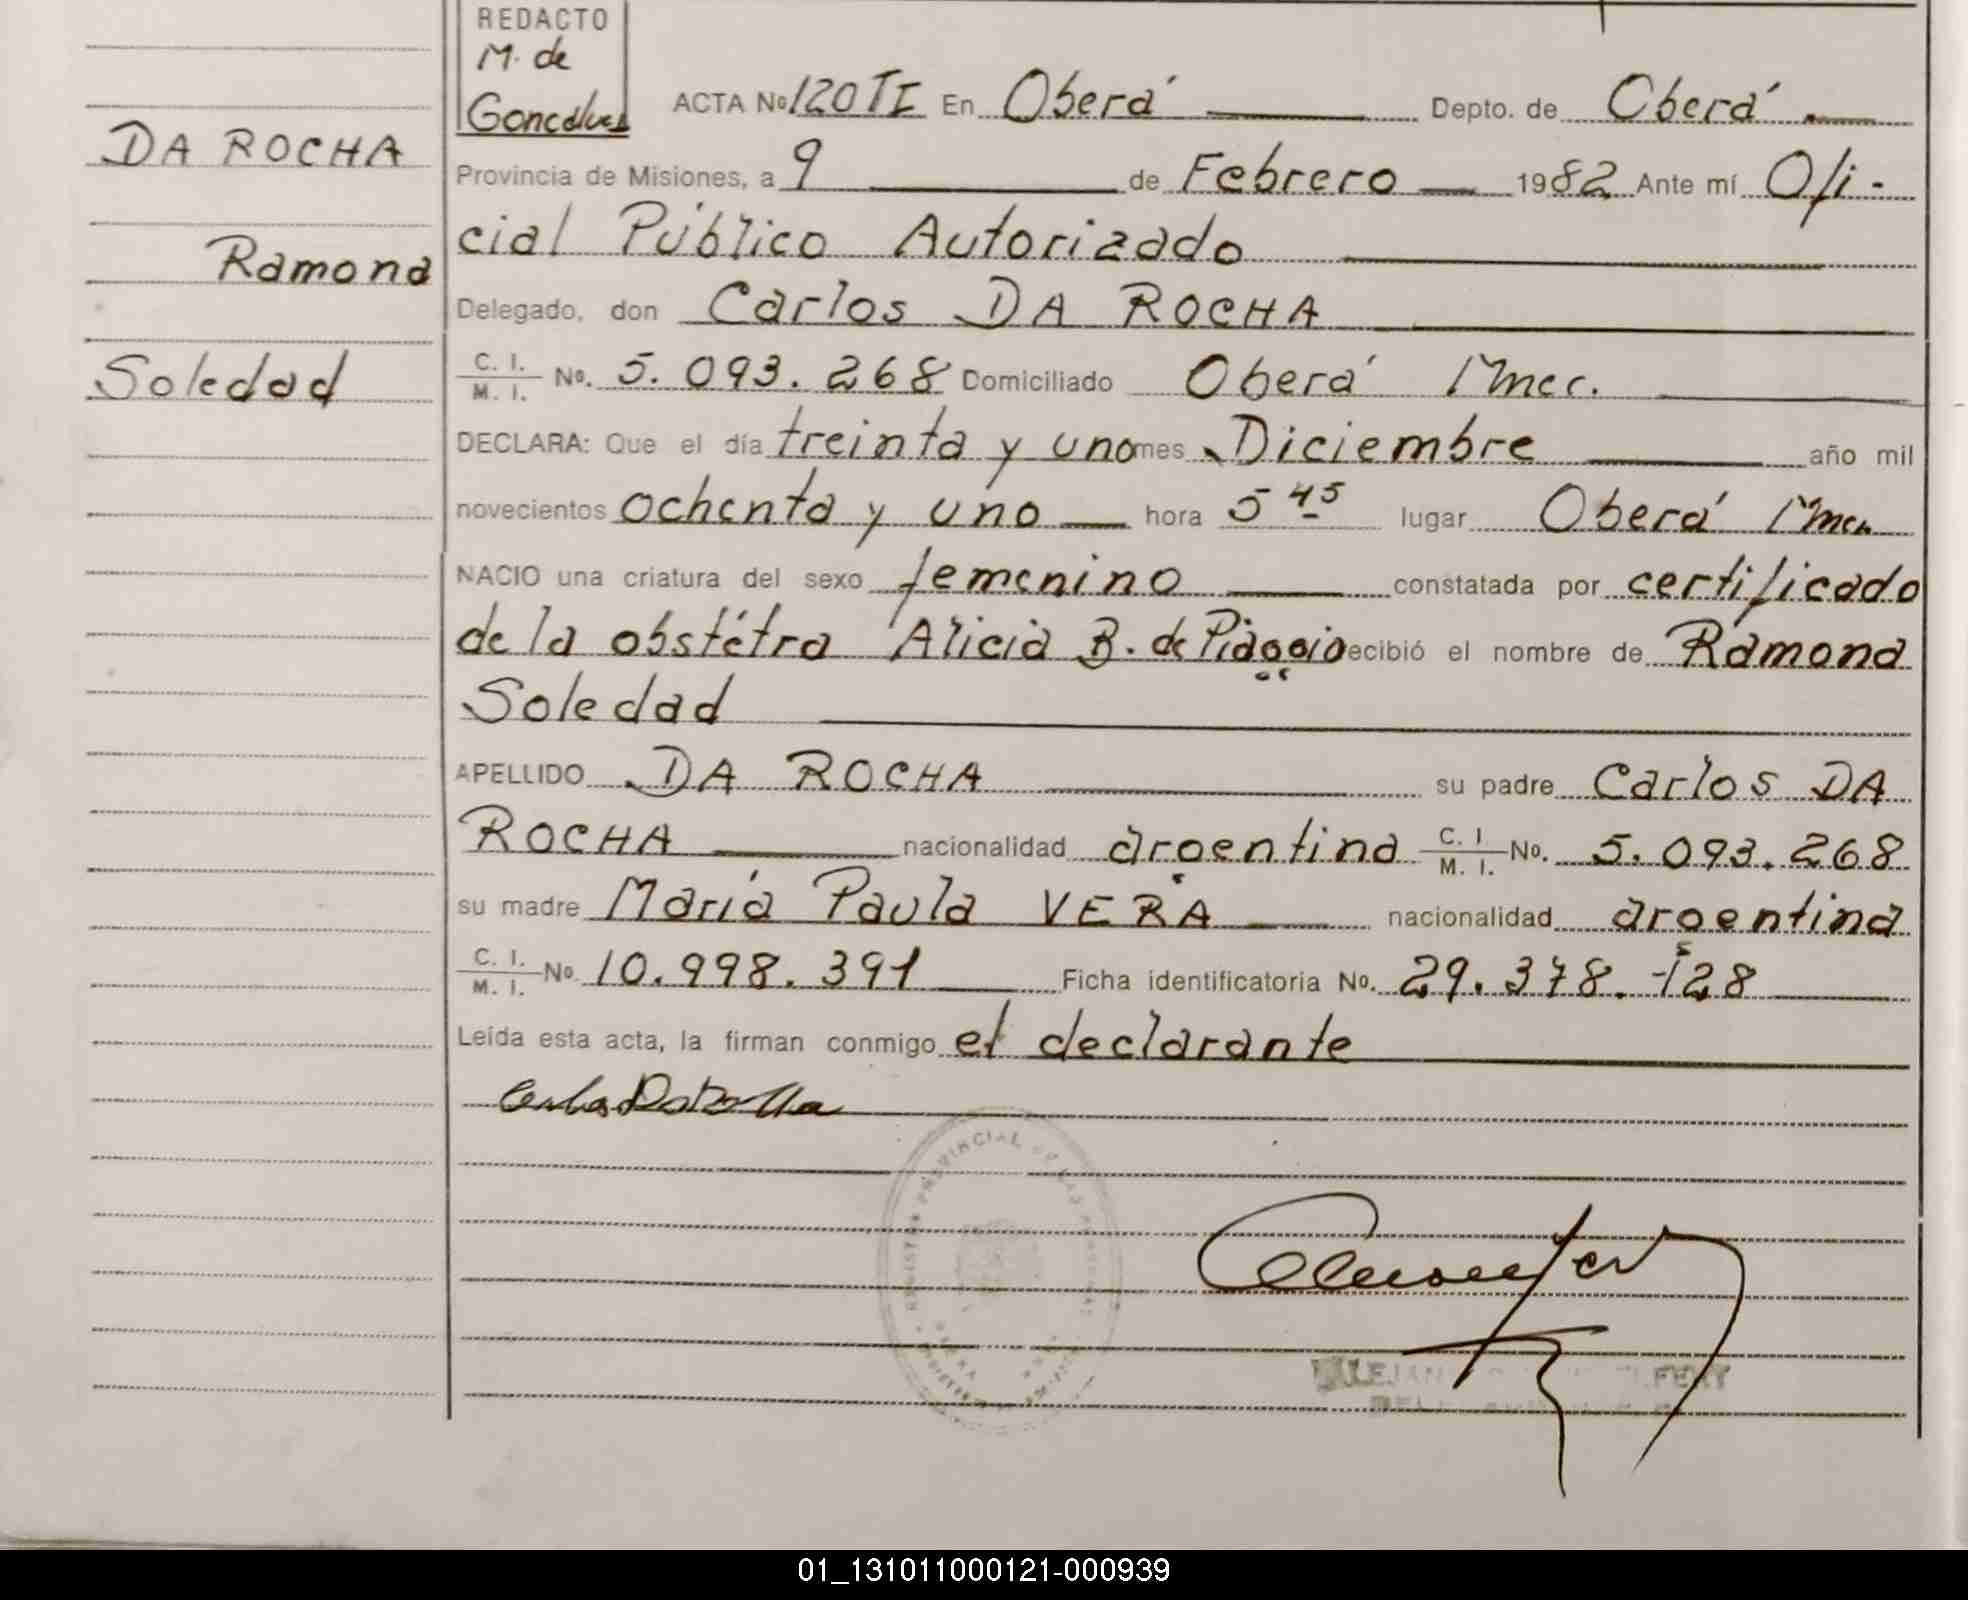 REDACTO
M. de
Goncalves
DA ROCHA
Ramona
Soledad
ACTA No 120 TI En Oberá Depto. de Oberá
Provincia de Misiones, a 9 de Febrero 1982 Ante mí Ofi-
cial Público Autorizado
Delegado, don Carlos DA ROCHA
C. I. / M. I. No. 5.093.268 Domiciliado Oberá Mnes.
DECLARA: Que el día treinta y uno mes Diciembre año mil
novecientos ochenta y uno hora 5 45 lugar Oberá Mnes
NACIO una criatura del sexo femenino constatada por certificado
de la obstétra Alicia B. de Piaggio ecibió el nombre de Ramona
Soledad
APELLIDO DA ROCHA su padre Carlos DA
ROCHA nacionalidad argentina C. I. / M. I. No. 5.093.268
su madre María Paula VERA nacionalidad argentina
C. I. / M. I. No. 10.998.391 Ficha identificatoria No. 29.378.128
Leída esta acta, la firman conmigo el declarante
01_131011000121-000939